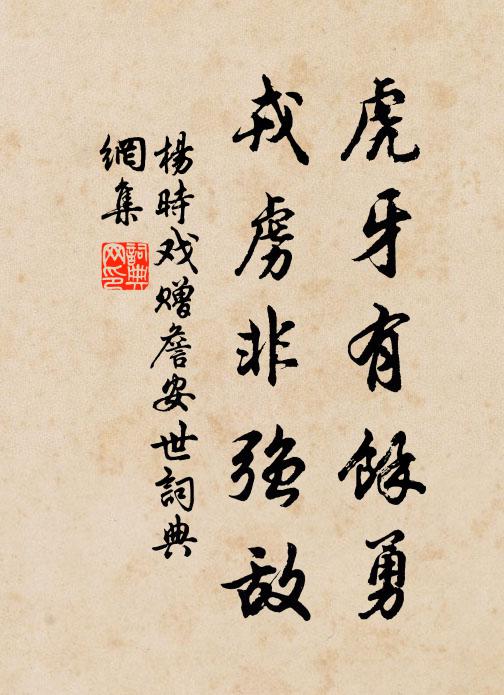 虎牙有餘勇
戎虜非強敵
楊時戏赠詹安世詞典
網集
詞典
网印